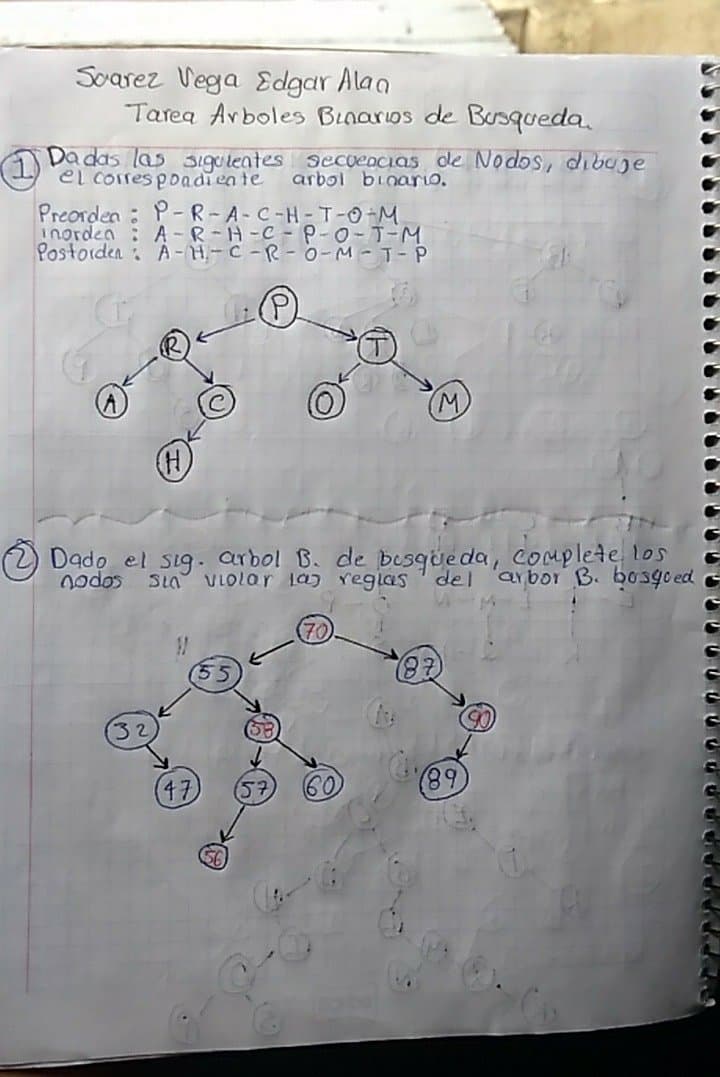 Suarez Vega Edgar Alan
Tarea Arboles Binarios de Busqueda.
1 Dadas las siguientes secuencias de Nodos, dibuje
el correspondiente arbol binario.
Preorden : P-R-A-C-H-T-O-M
inorden : A-R-H-C-P-O-T-M
Postorden : A-H-C-R-O-M-T-P
P
R T
A C O M
H
2 Dado el sig. arbol B. de busqueda, complete los
nodos sin violar las reglas del arbor B. bosqued
70
55 87
32 58 90
47 57 60 89
56